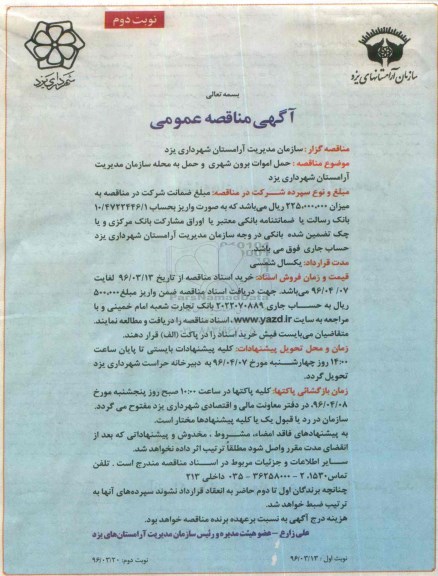 نوبت دوم
شهرداری یزد
سازمان آرامستانهای یزد
بسمه تعالی
آگهی مناقصه عمومی
مناقصه گزار: سازمان مدیریت آرامستان شهرداری یزد
موضوع مناقصه: حمل اموات برون شهری و حمل به محله سازمان مدیریت
آرامستان شهرداری یزد
مبلغ و نوع سپرده شرکت در مناقصه: مبلغ ضمانت شرکت در مناقصه به
میزان ۲۲۵،۰۰۰،۰۰۰ ریال می‌باشد که به صورت واریز بحساب ۱۰/۴۷۲۲۴۴۶/۱
بانک رسالت یا ضمانتنامه بانکی معتبر یا اوراق مشارکت بانک مرکزی و یا
چک تضمین شده بانکی در وجه سازمان مدیریت آرامستان شهرداری یزد
حساب جاری فوق می باشد.
مدت قرارداد: یکسال شمسی
قیمت و زمان فروش اسناد: خرید اسناد مناقصه از تاریخ ۹۶/۰۳/۱۳ لغایت
۹۶/۰۴/۰۷ می‌باشد. جهت دریافت اسناد مناقصه فیمن واریز مبلغ ۵۰۰،۰۰۰
ریال به حساب جاری ۲۰۲۲۰۷۰۸۸۹ بانک تجارت شعبه امام خمینی و با
مراجعه به سایت www.yazd.ir، اسناد مناقصه را دریافت و مطالعه نمایند.
متقاضیان می‌بایست فیش خرید اسناد را در پاکت (الف) قرار دهند.
زمان و محل تحویل پیشنهادات: کلیه پیشنهادات بایستی تا پایان ساعت
۱۴:۰۰ روز چهارشنبه مورخ ۹۶/۰۴/۰۷ به دبیرخانه حراست شهرداری یزد
تحویل گردد.
زمان بازگشائی پاکتها: کلیه پاکتها در ساعت ۱۰:۰۰ صبح روز پنجشنبه مورخ
۹۶/۰۴/۰۸، در دفتر معاونت مالی و اقتصادی شهرداری یزد مفتوح می گردد.
سازمان در رد یا قبول یک یا کلیه پیشنهادها مختار است.
به پیشنهادهای فاقد امضاء، مشروط، مخدوش و پیشنهاداتی که بعد از
انقضای مدت مقرر واصل شود مطلقاً ترتیب اثر داده نخواهد شد.
سایر اطلاعات و جزئیات مربوط در اسناد مناقصه مندرج است. تلفن
تماس ۲،۱۵۳۰ - ۳۶۲۵۸۰۰۰ - ۰۳۵ داخلی ۲۱۳
چنانچه برندگان اول تا دوم حاضر به انعقاد قرارداد نشوند سپرده‌های آنها به
ترتیب ضبط خواهد شد.
هزینه درج آگهی به نسبت برعهده برنده مناقصه خواهد بود.
علی زارع - عضو هیئت مدیره و رئیس سازمان مدیریت آرامستان‌های یزد
نوبت اول: ۹۶/۰۳/۱۳
نوبت دوم: ۹۶/۰۳/۲۰